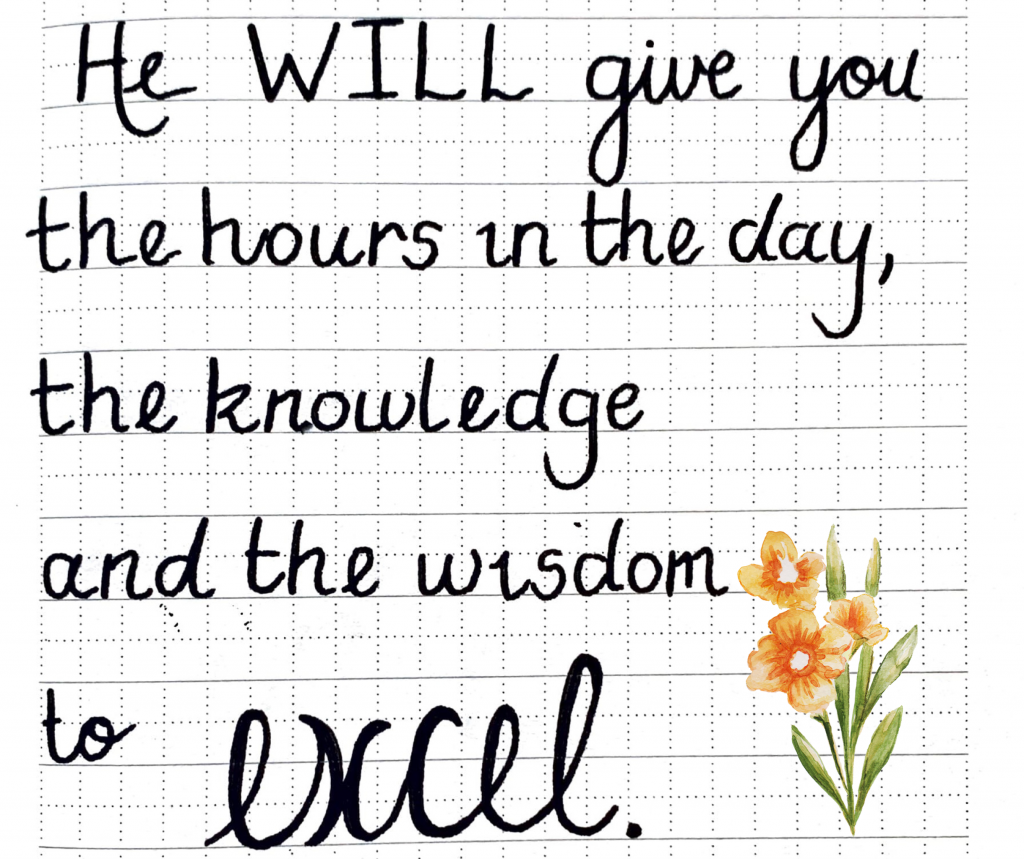 He WILL give you
the hours in the day,
the knowledge
and the wisdom
to excel.